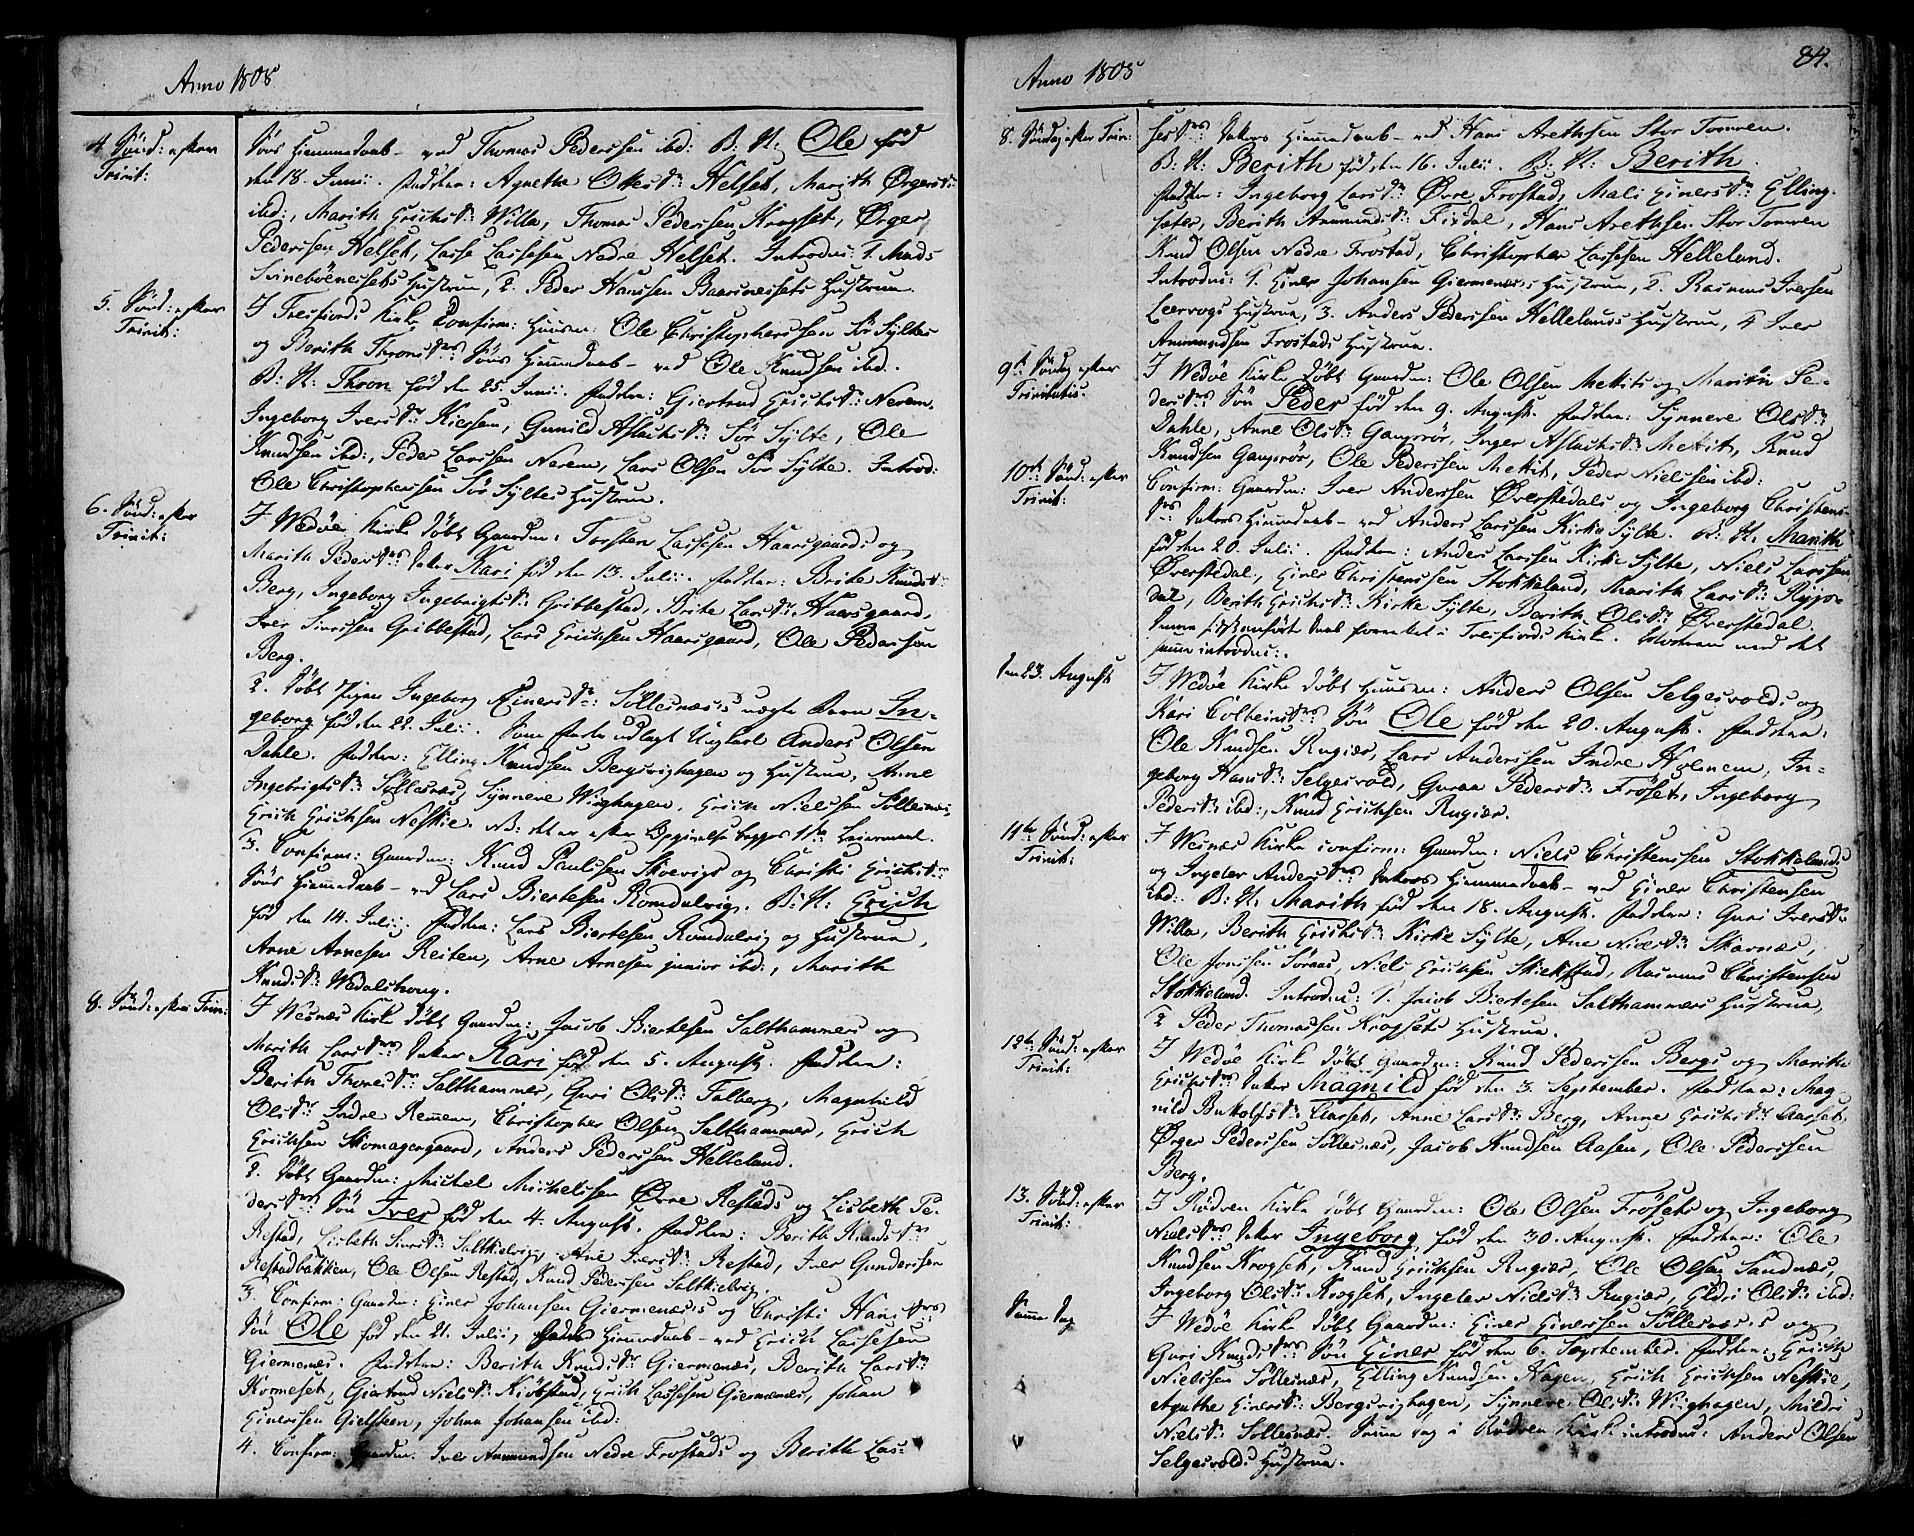 Anno 1808
4. Sönd: efter
Trinit:
Søns Hiemmedaab - ved Thomas Pederssen ibd: B: N: Ole fød
den 18. Junii. Faddere: Agnethe Olles Dr: Helset, Marith Ørgers Dr:
ibd:, Marith Erichs Dr: Willa, Thomas Pederssen Kragset, Ørger
Pederssen Helset, Lasse Lassesen Nedre Helset. Introdu: 1. Mads
Svinebøenessets Hustrue, 2. Peder Hanssen Baarsnessets Hustrue.
5. Sönd: efter
Trinit:
I Tresfiords Kirke Confirm: Huusm: Ole Christopherssen Sør Syltes
og Berith Throns Drs: Søns Hiemmedaab - ved Ole Knudsen ibd.
B: N: Thron fød den 25. Junii. Faddere: Giertrud Erichs Dr: Nerem,
Ingeborg Ivers Dr: Kiersem, Gunild Aslachs Dr: Sør Sylte, Ole
Knudsen ibd:, Peder Larssen Nerem, Lars Olsen Sør Sylte. Introd:
Ole Christopherssen Sør Syltes Hustrue.
6. Sönd: efter
Trinit:
I Wedöe Kirke døbt Gaardm: Torsten Lassesen Haarsgaards og
Marith Peders Drs: Datter Kari fød den 13. Julii. Faddere: Brithe Knuds Dr:
Berg, Ingeborg Ingebrigts Dr: Gribbestad, Brithe Lars Dr: Haarsgaard,
Iver Iverssen Gribbestad, Lars Erichsen Haarsgaard, Ole Pederssen
Berg.
2. Døbt Pigen Ingeborg Einers Dr: Søllesnæs's uægte Barn In-
geborg fød den 22. Julii. Som Fader udlagt Ungkarl Anders Olsen
Dahle. Faddere: Elling Knudsen Bergsvighagen og Hustrue, Anne
Ingebrigts Dr: Søllesnæs, Synneve Wiighagen, Erich Nielssen Søllesnæs,
Erich Erichsen Neskie. NB: det er efter Opgivelse begges 1ste Leiermaal.
3. Confirm: Gaardm: Knud Paulssen Skoevigs og Christi Erichs Drs:
Søns Hiemmedaab - ved Lars Biertelsen Romdalsvig. B: N: Erich
fød den 14. Julii. Faddere: Lars Biertelsen Romdalsvig og Hustrue,
Arne Arnesen Reiten, Arne Arnesen junior ibd:, Marith
Knuds Dr: Wedalshoug.
8. Sönd: efter Trin:
I Wesnæs Kirke døbt Gaardm: Jacob Biertelsen Salthammers og
Marith Lars Drs: Datter Kari fød den 5. August. Faddere:
Berith Thores Dr: Salthammer, Guri Ols Dr: Talberg, Magnhild
Ols Dr: Indre Remem, Christopher Olsen Salthammer, Erich
Erichsen Skomagergaard, Anders Pederssen Helleland.
2. Døbt Gaardm: Michel Michelssen Øvre Restads og Lisbeth Pe-
ders Drs: Søn Iver fød den 4. August. Faddere: Berith Knuds Dr:
Restad, Lisbeth Ivers Dr: Saltkielvig, Ane Ivers Dr: Restad, Iver Gunderssen
Restadbakken, Ole Olsen Restad, Knud Pederssen Saltkielvig.
3. Confirm: Gaardm: Einer Johansen Giermenæs's og Christi Hans Drs:
Søn Ole fød den 21. Julii, Hiemmedaab - ved Erich Lassesen
Giermenæs. Faddere: Berith Knuds Dr: Giermenæs, Berith Lars Dr:
Korneset, Giertrud Niels Dr: Kiöbstad, Erich Lassesen Giermenæs, Johan
Einerssen Gielsteen, Johan Johansen ibd:
4. Confirm: Gaardm: Iver Ammundsen Nedre Frostads og Berith Las-
Anno 1808
84.
8. Söndag efter Trin:
ses Drs: Datters Hiemmedaab - ved Hans Arethsen Stor Tomren.
B: N: Berith fød den 16. Julii. B: N: Berith.
Faddere: Ingeborg Lars Dr: Øvre Frostad, Mali Einers Dr: Elling-
sæter, Berith Ammunds Dr: Fixdal, Hans Arethsen Stor Tomren
Knud Olsen Nedre Frostad, Christopher Lassesen Helleland.
Introdu: 1. Einer Johansen Giermenæs's Hustrue, 2. Rasmus Iversen
Leervogs Hustrue, 3. Anders Pederssen Hellelands Hustrue, 4 Iver
Ammundsen Frostads Hustrue.
9de Söndag efter
Trinitatis.
I Wedöe Kirke døbt Gaardm: Ole Olsen Mekits og Marith Pe-
ders Drs: Søn Peder fød den 9. August. Faddere: Synneve Ols Dr:
Dahle, Anne Ols Dr: Gangsrör, Inger Aslachs Dr: Mekit, Knud
Knudsen Gangsrör, Ole Pederssen Mekit, Peder Nielssen ibd:
10de Sönd: efter
Trinit:
Confirm: Gaardm: Iver Anderssen Øverstedals og Ingeborg Christens
Drs: Datters Hiemmedaab - ved Anders Larssen Kirke Sylte. B: N: Marith
fød den 20. Julii. Faddere: Anders Larssen Kirke Sylte, Niels Larssen
Øverstedal, Einer Christenssen Stokkeland, Marith Lars Dr: Ryps-
dal, Berith Erichs Dr: Kirke Sylte, Berith Ols Dr: Øverstedal.
Denne sidst anførte Daab forrettet i Tresfiords Kirke. Moderen med det
samme introdu:.
Den 23. August
I Wedöe Kirke døbt Huusm: Anders Olsen Selgesvolds og
Kari Colbeins Drs: Søn Ole fød den 20. August. Faddere:
Ole Knudsen Rugiær, Lars Anderssen Indre Holmem, In-
geborg Hans Dr: Selgesvold, Guraa Peders Dr: Fröset, Ingeborg
Peders Dr: ibd:, Knud Erichsen Rugiær.
11te Sönd: efter
Trinit:
I Wesnæs Kirke confirm: Gaardm: Niels Christenssen Stokkelands
og Ingeler Anders Drs: Datters Hiemmedaab - ved Einer Christensen
ibd: B: N: Marith fød den 18. August. Faddere: Guri Ivers Dr:
Willa, Berith Erichs Dr: Kirke Sylte, Ane Niels Dr: Skarnæs,
Ole Jonsen Søraas, Niels Erichsen Skiekstad, Rasmus Christensen
Stokkeland. Introdu: 1. Jacob Biertelsen Salthammers Hustrue,
2 Peder Thomassen Kragsets Hustrue.
12te Sönd: efter
Trinit:
I Wedöe Kirke døbt Gaardm: Knud Pederssen Bergs og Marith
Erichs Drs: Datter Magnild fød den 3. September. Faddere: Mag-
nild Botolfs Dr: Aarset, Anne Lars Dr: Berg, Anne Erichs Dr: Aarset,
Ørger Pederssen Søllesnæs, Jacob Knudsen Aasen, Ole Pederssen
Berg.
13. Sönd: efter
Trinit:
I Rødven Kirke døbt Gaardm: Ole Olsen Frösets og Ingeborg
Niels Drs: Datter Ingeborg fød den 30. August. Faddere: Ole
Knudsen Krogset, Knud Erichsen Rugiær, Ole Olsen Sandnæs,
Ingeborg Ols Dr: Krogset, Ingeler Niels Dr: Rugiær, Gldri Ols Dr: ibd:
Samme Dag
I Wedöe Kirke døbt Gaardm: Einer Einerssen Søllesnæs's og
Guri Knuds Drs: Søn Einer fød den 6. September. Faddere: Erich
Nielssen Søllesnæs, Elling Knudsen Hagen, Erich Erichsen Neskie,
Agathe Einers Dr: Bergsvighagen, Synneve Ols Dr: Wiighagen, Mildri
Niels Dr: Søllesnæs. Samme Dag i Rødven Kirke introdu: Anders Olsen
Selgesvolds Hustrue.